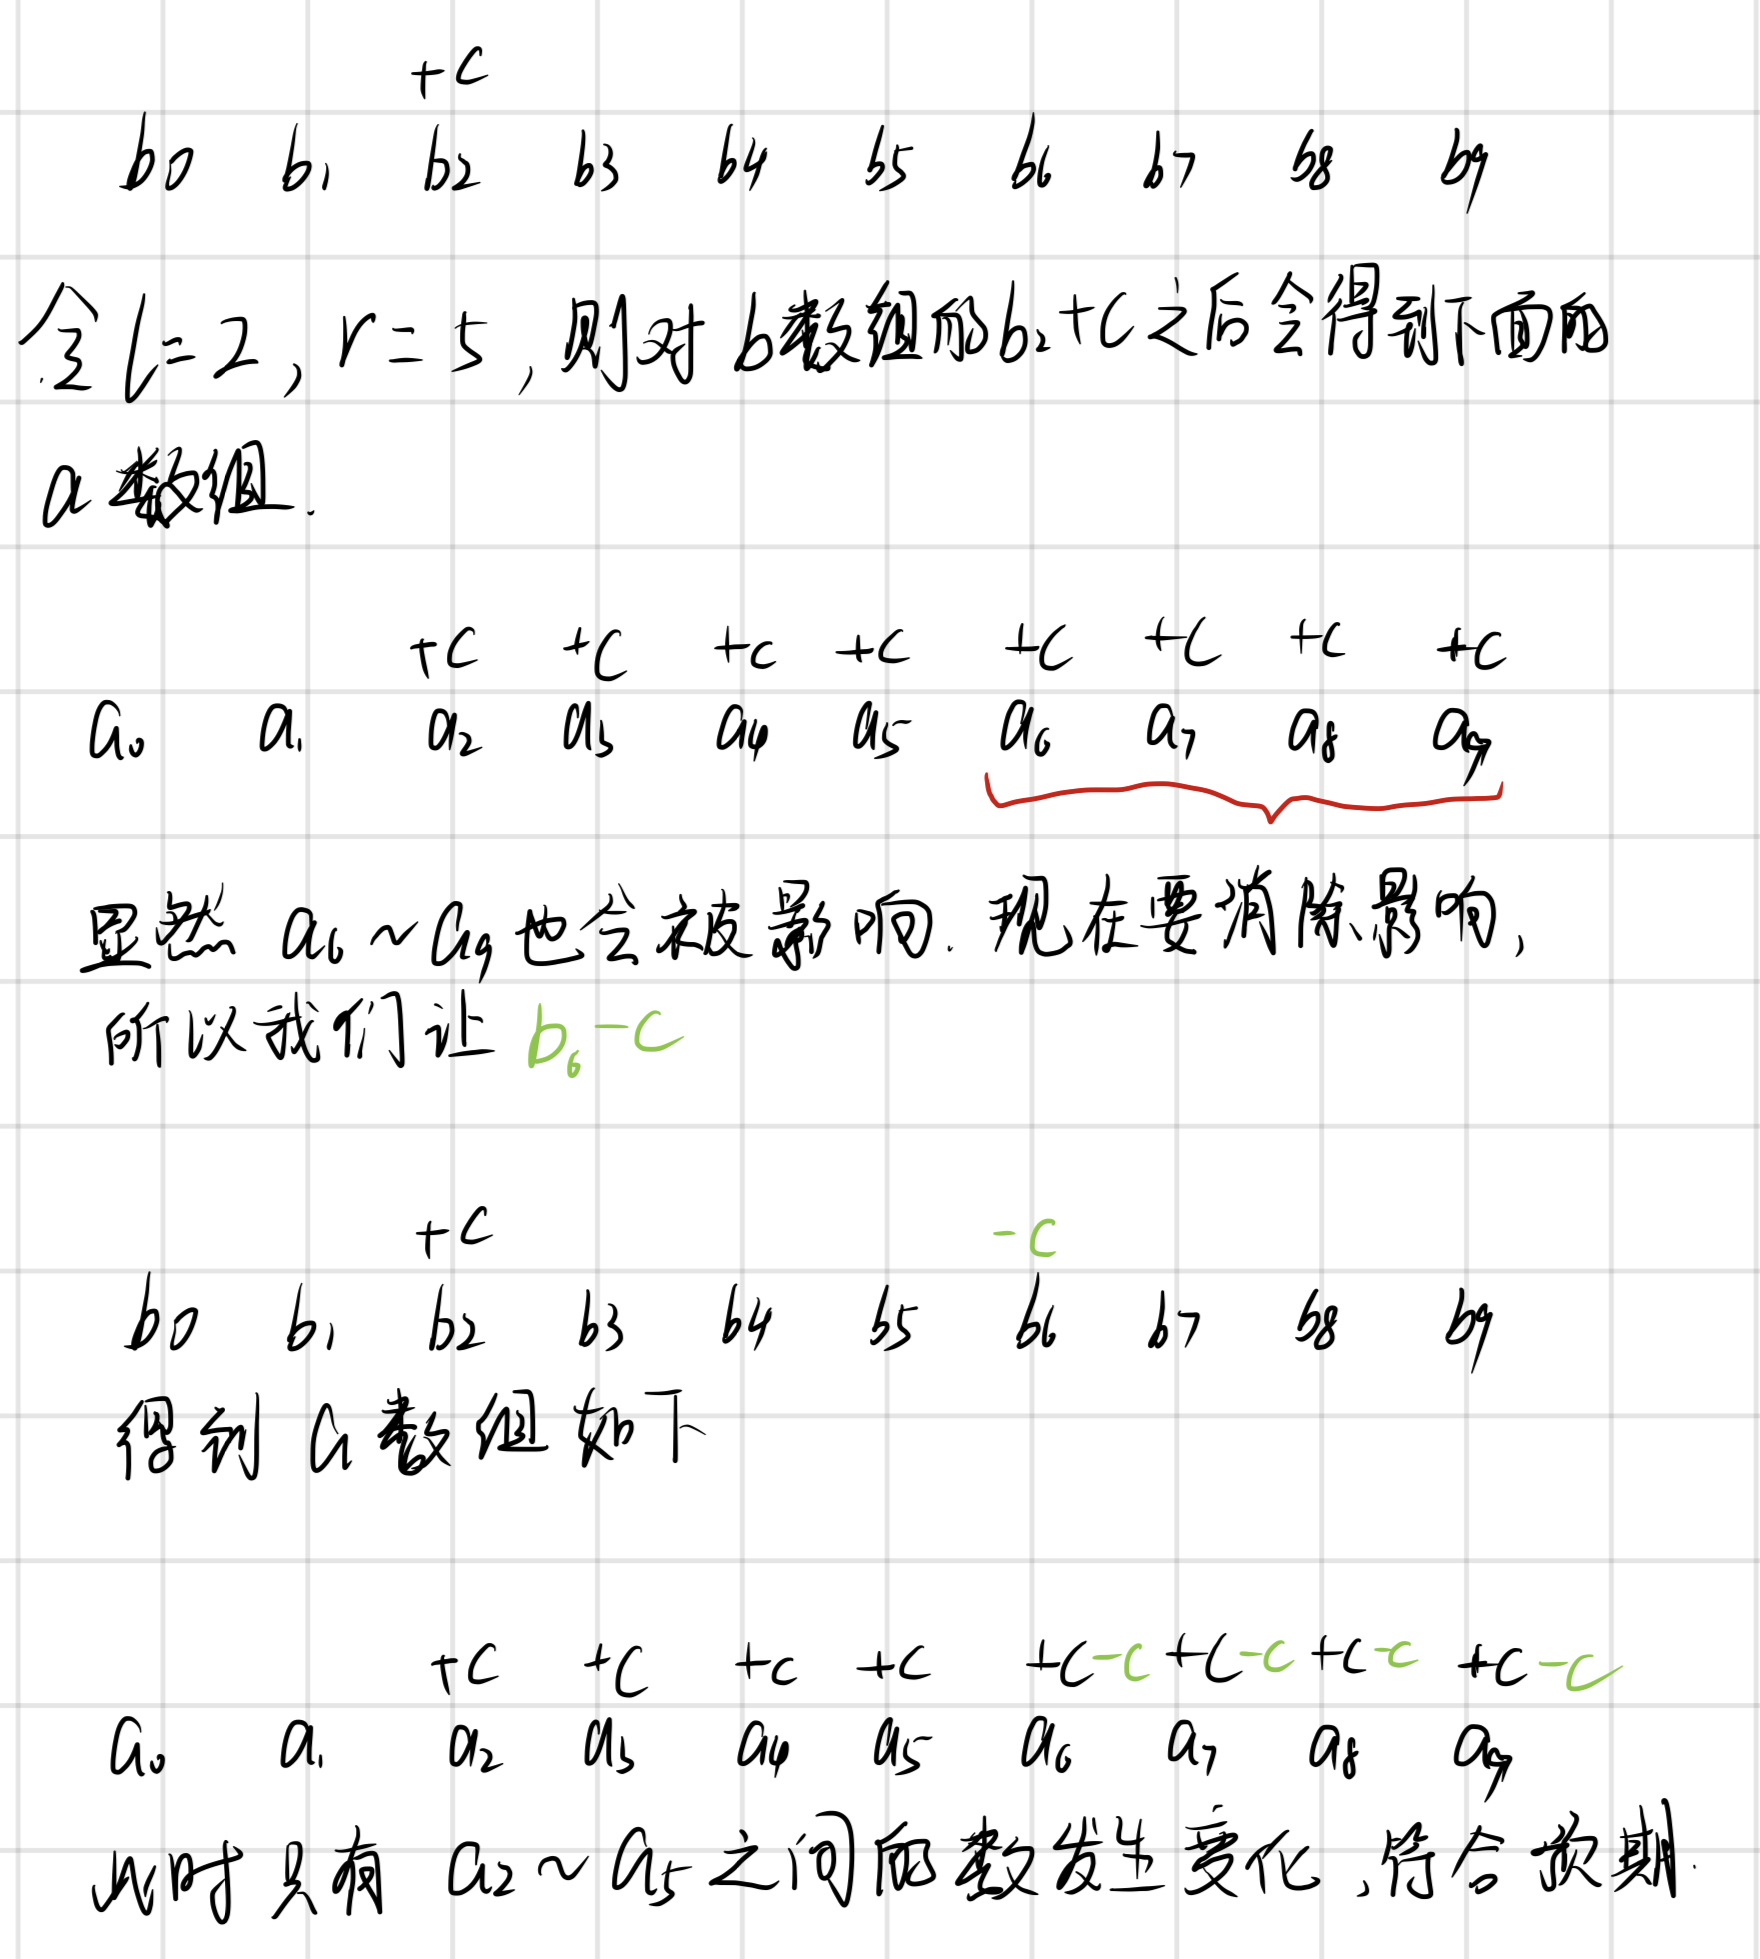 +C
b0 b1 b2 b3 b4 b5 b6 b7 b8 b9
令 l=2, r=5, 则对 b数组的b2+C 之后会得到下面的
a 数组.
+C +C +C +C +C +C +C +C
a0 a1 a2 a3 a4 a5 a6 a7 a8 a9
显然 a6~a9 也会被影响. 现在要消除影响,
所以我们让 b6-C
+C -C
b0 b1 b2 b3 b4 b5 b6 b7 b8 b9
得到 a 数组如下
+C +C +C +C +C-C +C-C +C-C +C-C
a0 a1 a2 a3 a4 a5 a6 a7 a8 a9
此时只有 a2~a5 之间的数发生变化,符合预期.